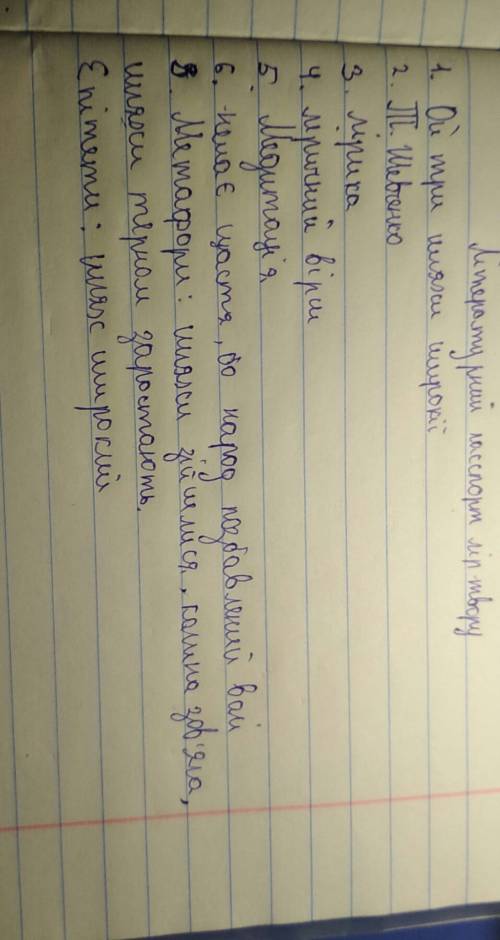 Літературний паспорт лір. твору
1. Ой три шляхи широкії
2. Т. Шевченко
3. лірика
4. ліричний вірш
5 Медитація
6. немає щастя, бо народ позбавлений волі
8. Метафори: шляхи зійшлися, калина зов'яла,
шляхи терном заростають.
Епітети: шлях широкий